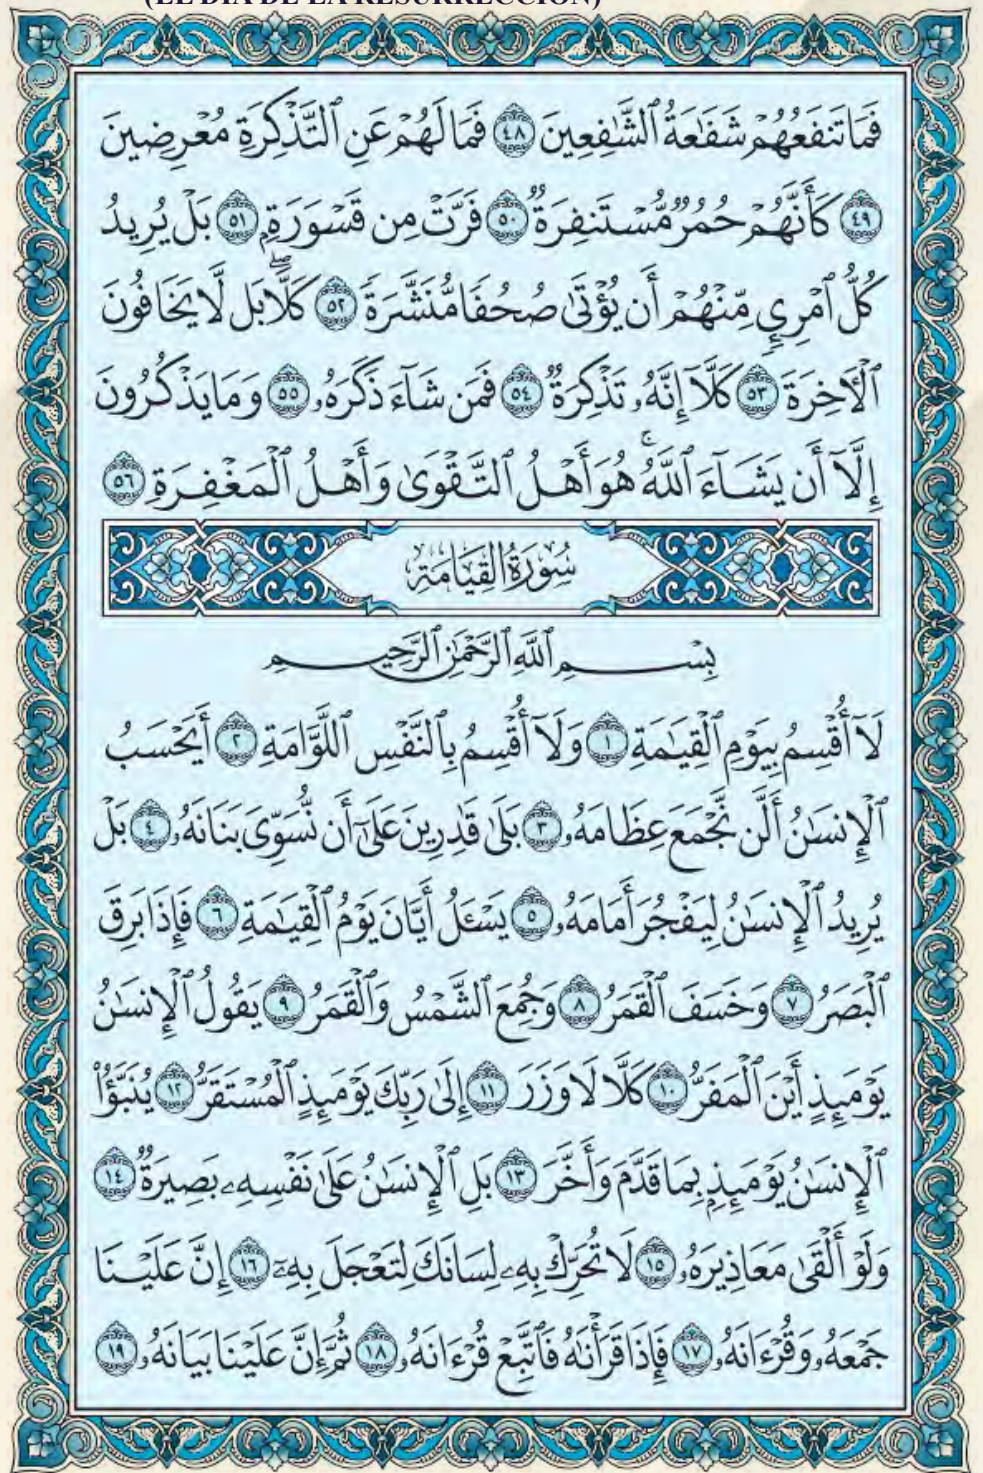 (EL DÍA DE LA RESURRECCIÓN)
فَمَا تَنفَعُهُمْ شَفَٰعَةُ ٱلشَّٰفِعِينَ ٤٨ فَمَا لَهُمْ عَنِ ٱلتَّذْكِرَةِ مُعْرِضِينَ
٤٩ كَأَنَّهُمْ حُمُرٌ مُّسْتَنفِرَةٌ ٥٠ فَرَّتْ مِن قَسْوَرَةٍ ٥١ بَلْ يُرِيدُ
كُلُّ ٱمْرِئٍ مِّنْهُمْ أَن يُؤْتَىٰ صُحُفًا مُّنَشَّرَةً ٥٢ كَلَّا ۖ بَل لَّا يَخَافُونَ
ٱلْأَخِرَةَ ٥٣ كَلَّآ إِنَّهُۥ تَذْكِرَةٌ ٥٤ فَمَن شَآءَ ذَكَرَهُۥ ٥٥ وَمَا يَذْكُرُونَ
إِلَّآ أَن يَشَآءَ ٱللَّهُ ۚ هُوَ أَهْلُ ٱلتَّقْوَىٰ وَأَهْلُ ٱلْمَغْفِرَةِ ٥٦
سُورَةُ القِيَامَةِ
بِسْمِ ٱللَّهِ ٱلرَّحْمَٰنِ ٱلرَّحِيمِ
لَآ أُقْسِمُ بِيَوْمِ ٱلْقِيَٰمَةِ ١ وَلَآ أُقْسِمُ بِٱلنَّفْسِ ٱللَّوَّامَةِ ٢ أَيَحْسَبُ
ٱلْإِنسَٰنُ أَلَّن نَّجْمَعَ عِظَامَهُۥ ٣ بَلَىٰ قَٰدِرِينَ عَلَىٰٓ أَن نُّسَوِّىَ بَنَانَهُۥ ٤ بَلْ
يُرِيدُ ٱلْإِنسَٰنُ لِيَفْجُرَ أَمَامَهُۥ ٥ يَسْـَٔلُ أَيَّانَ يَوْمُ ٱلْقِيَٰمَةِ ٦ فَإِذَا بَرِقَ
ٱلْبَصَرُ ٧ وَخَسَفَ ٱلْقَمَرُ ٨ وَجُمِعَ ٱلشَّمْسُ وَٱلْقَمَرُ ٩ يَقُولُ ٱلْإِنسَٰنُ
يَوْمَئِذٍ أَيْنَ ٱلْمَفَرُّ ١٠ كَلَّا لَا وَزَرَ ١١ إِلَىٰ رَبِّكَ يَوْمَئِذٍ ٱلْمُسْتَقَرُّ ١٢ يُنَبَّؤُا۟
ٱلْإِنسَٰنُ يَوْمَئِذٍۭ بِمَا قَدَّمَ وَأَخَّرَ ١٣ بَلِ ٱلْإِنسَٰنُ عَلَىٰ نَفْسِهِۦ بَصِيرَةٌ ١٤
وَلَوْ أَلْقَىٰ مَعَاذِيرَهُۥ ١٥ لَا تُحَرِّكْ بِهِۦ لِسَانَكَ لِتَعْجَلَ بِهِۦٓ ١٦ إِنَّ عَلَيْنَا
جَمْعَهُۥ وَقُرْءَانَهُۥ ١٧ فَإِذَا قَرَأْنَٰهُ فَٱتَّبِعْ قُرْءَانَهُۥ ١٨ ثُمَّ إِنَّ عَلَيْنَا بَيَانَهُۥ ١٩